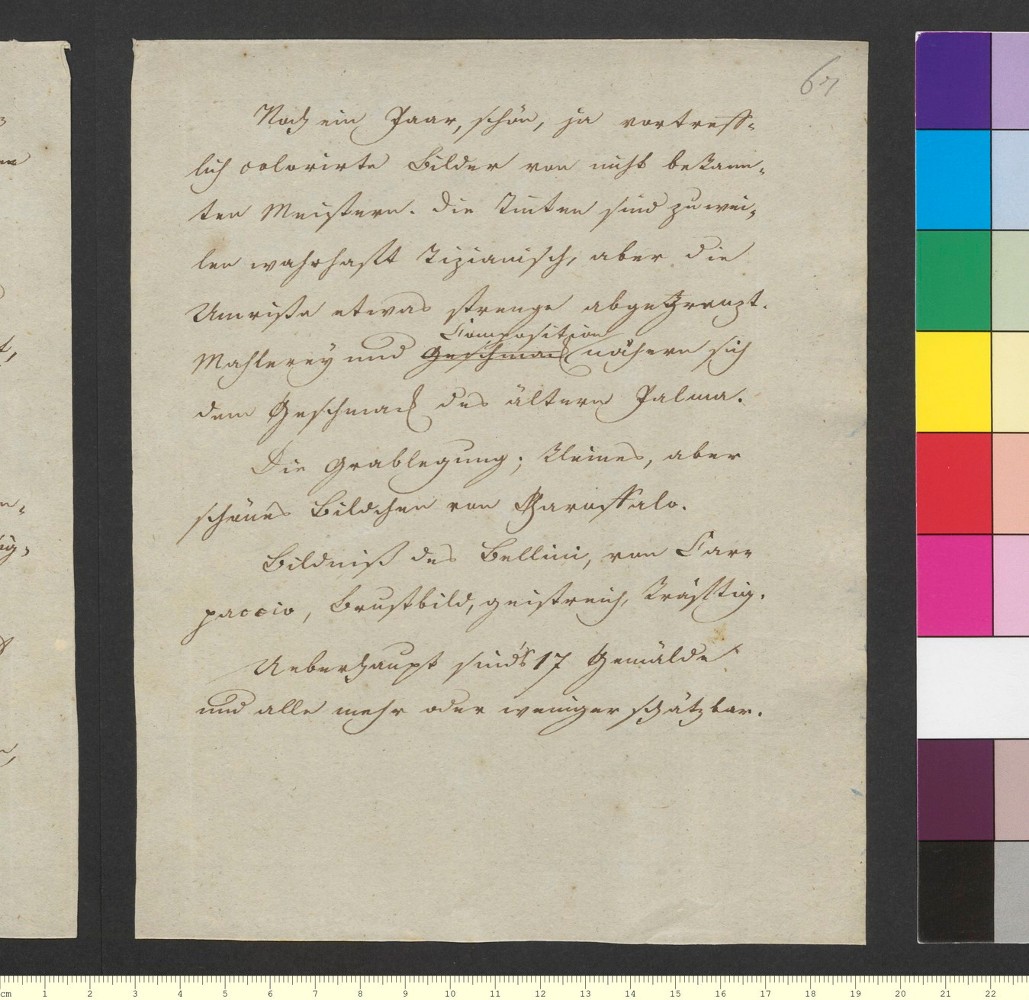 67
Noch ein Paar, schön, ja vortreff-
lich colorirte Bilder von nicht bekann-
ten Meistern. Die Tinten sind zuwei-
len wahrhafft Tizianisch, aber die
Umriße etwas strenge abgegrenzt.
Composition
Mahlerey und Geschmack nähern sich
dem Geschmack des ältern Palma.
Die Grablegung; kleines, aber
schönes Bildchen von Garoffalo.
Bildniß des Bellini, von Car-
paccio, Brustbild, geistreich, kräfftig.
Ueberhaupt sind's 17 Gemälde
und alle mehr oder weniger schätzbar.
cm 1 2 3 4 5 6 7 8 9 10 11 12 13 14 15 16 17 18 19 20 21 22